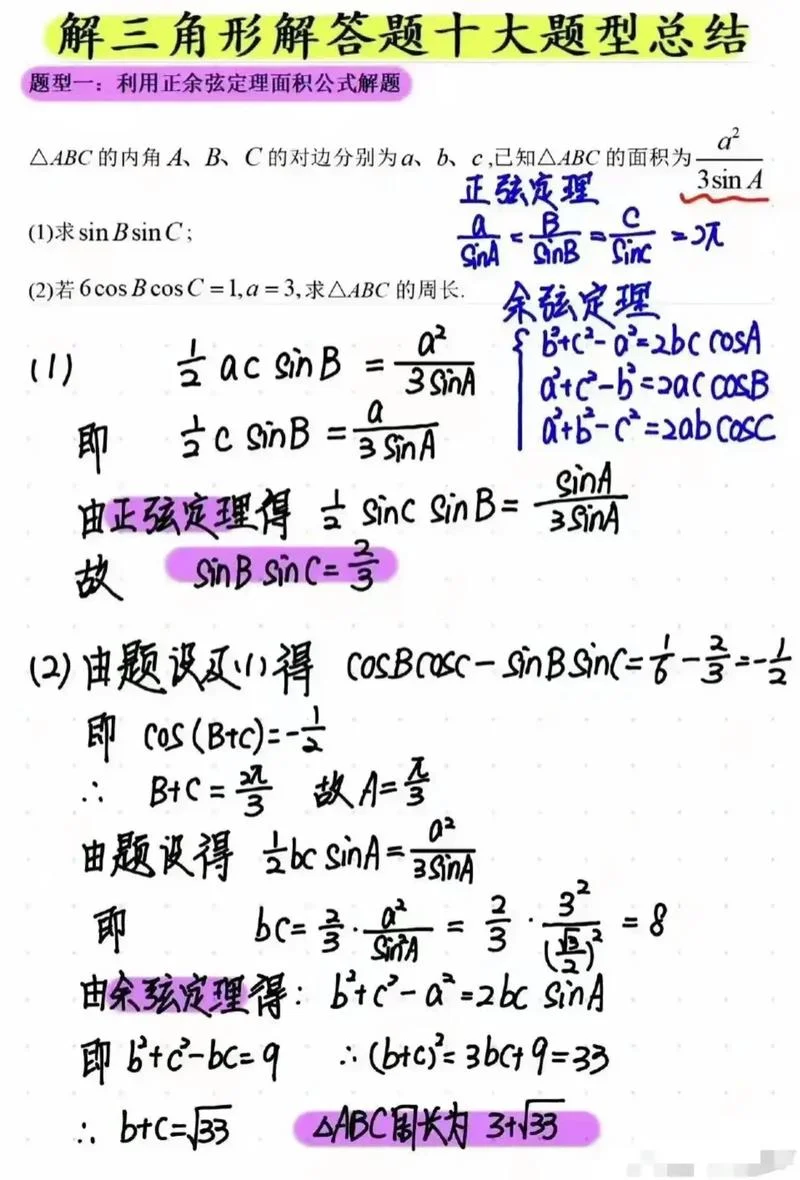 解三角形解答题十大题型总结
题型一：利用正余弦定理面积公式解题
△ABC 的内角 A、B、C 的对边分别为 a、b、c ,已知△ABC 的面积为 a²/(3sin A)
正弦定理
(1)求 sin B sin C ;
a/sinA = B/sinB = C/sinc = 2π
(2)若 6cos B cos C = 1, a = 3, 求△ABC 的周长.
余弦定理
b²+c²-a²=2bc cosA
a²+c²-b²=2ac cosB
a²+b²-c²=2ab cosC
(1) 1/2 ac sinB = a²/(3sinA)
即 1/2 c sinB = a/(3sinA)
由正弦定理得 1/2 sinc sinB = sinA/(3sinA)
故 sinB sinC = 2/3
(2) 由题设及(1)得 cosBcosc - sinBsinC = 1/6 - 2/3 = -1/2
即 cos(B+c) = -1/2
∴ B+C = 2π/3 故A = π/3
由题设得 1/2 bc sinA = a²/(3sinA)
即 bc = 2/3 · a²/sin²A = 2/3 · 3²/(√3/2)² = 8
由余弦定理得: b²+c²-a²=2bc sinA
即 b²+c²-bc=9 ∴ (b+c)²=3bc+9=33
∴ b+c=√33 △ABC周长为 3+√33